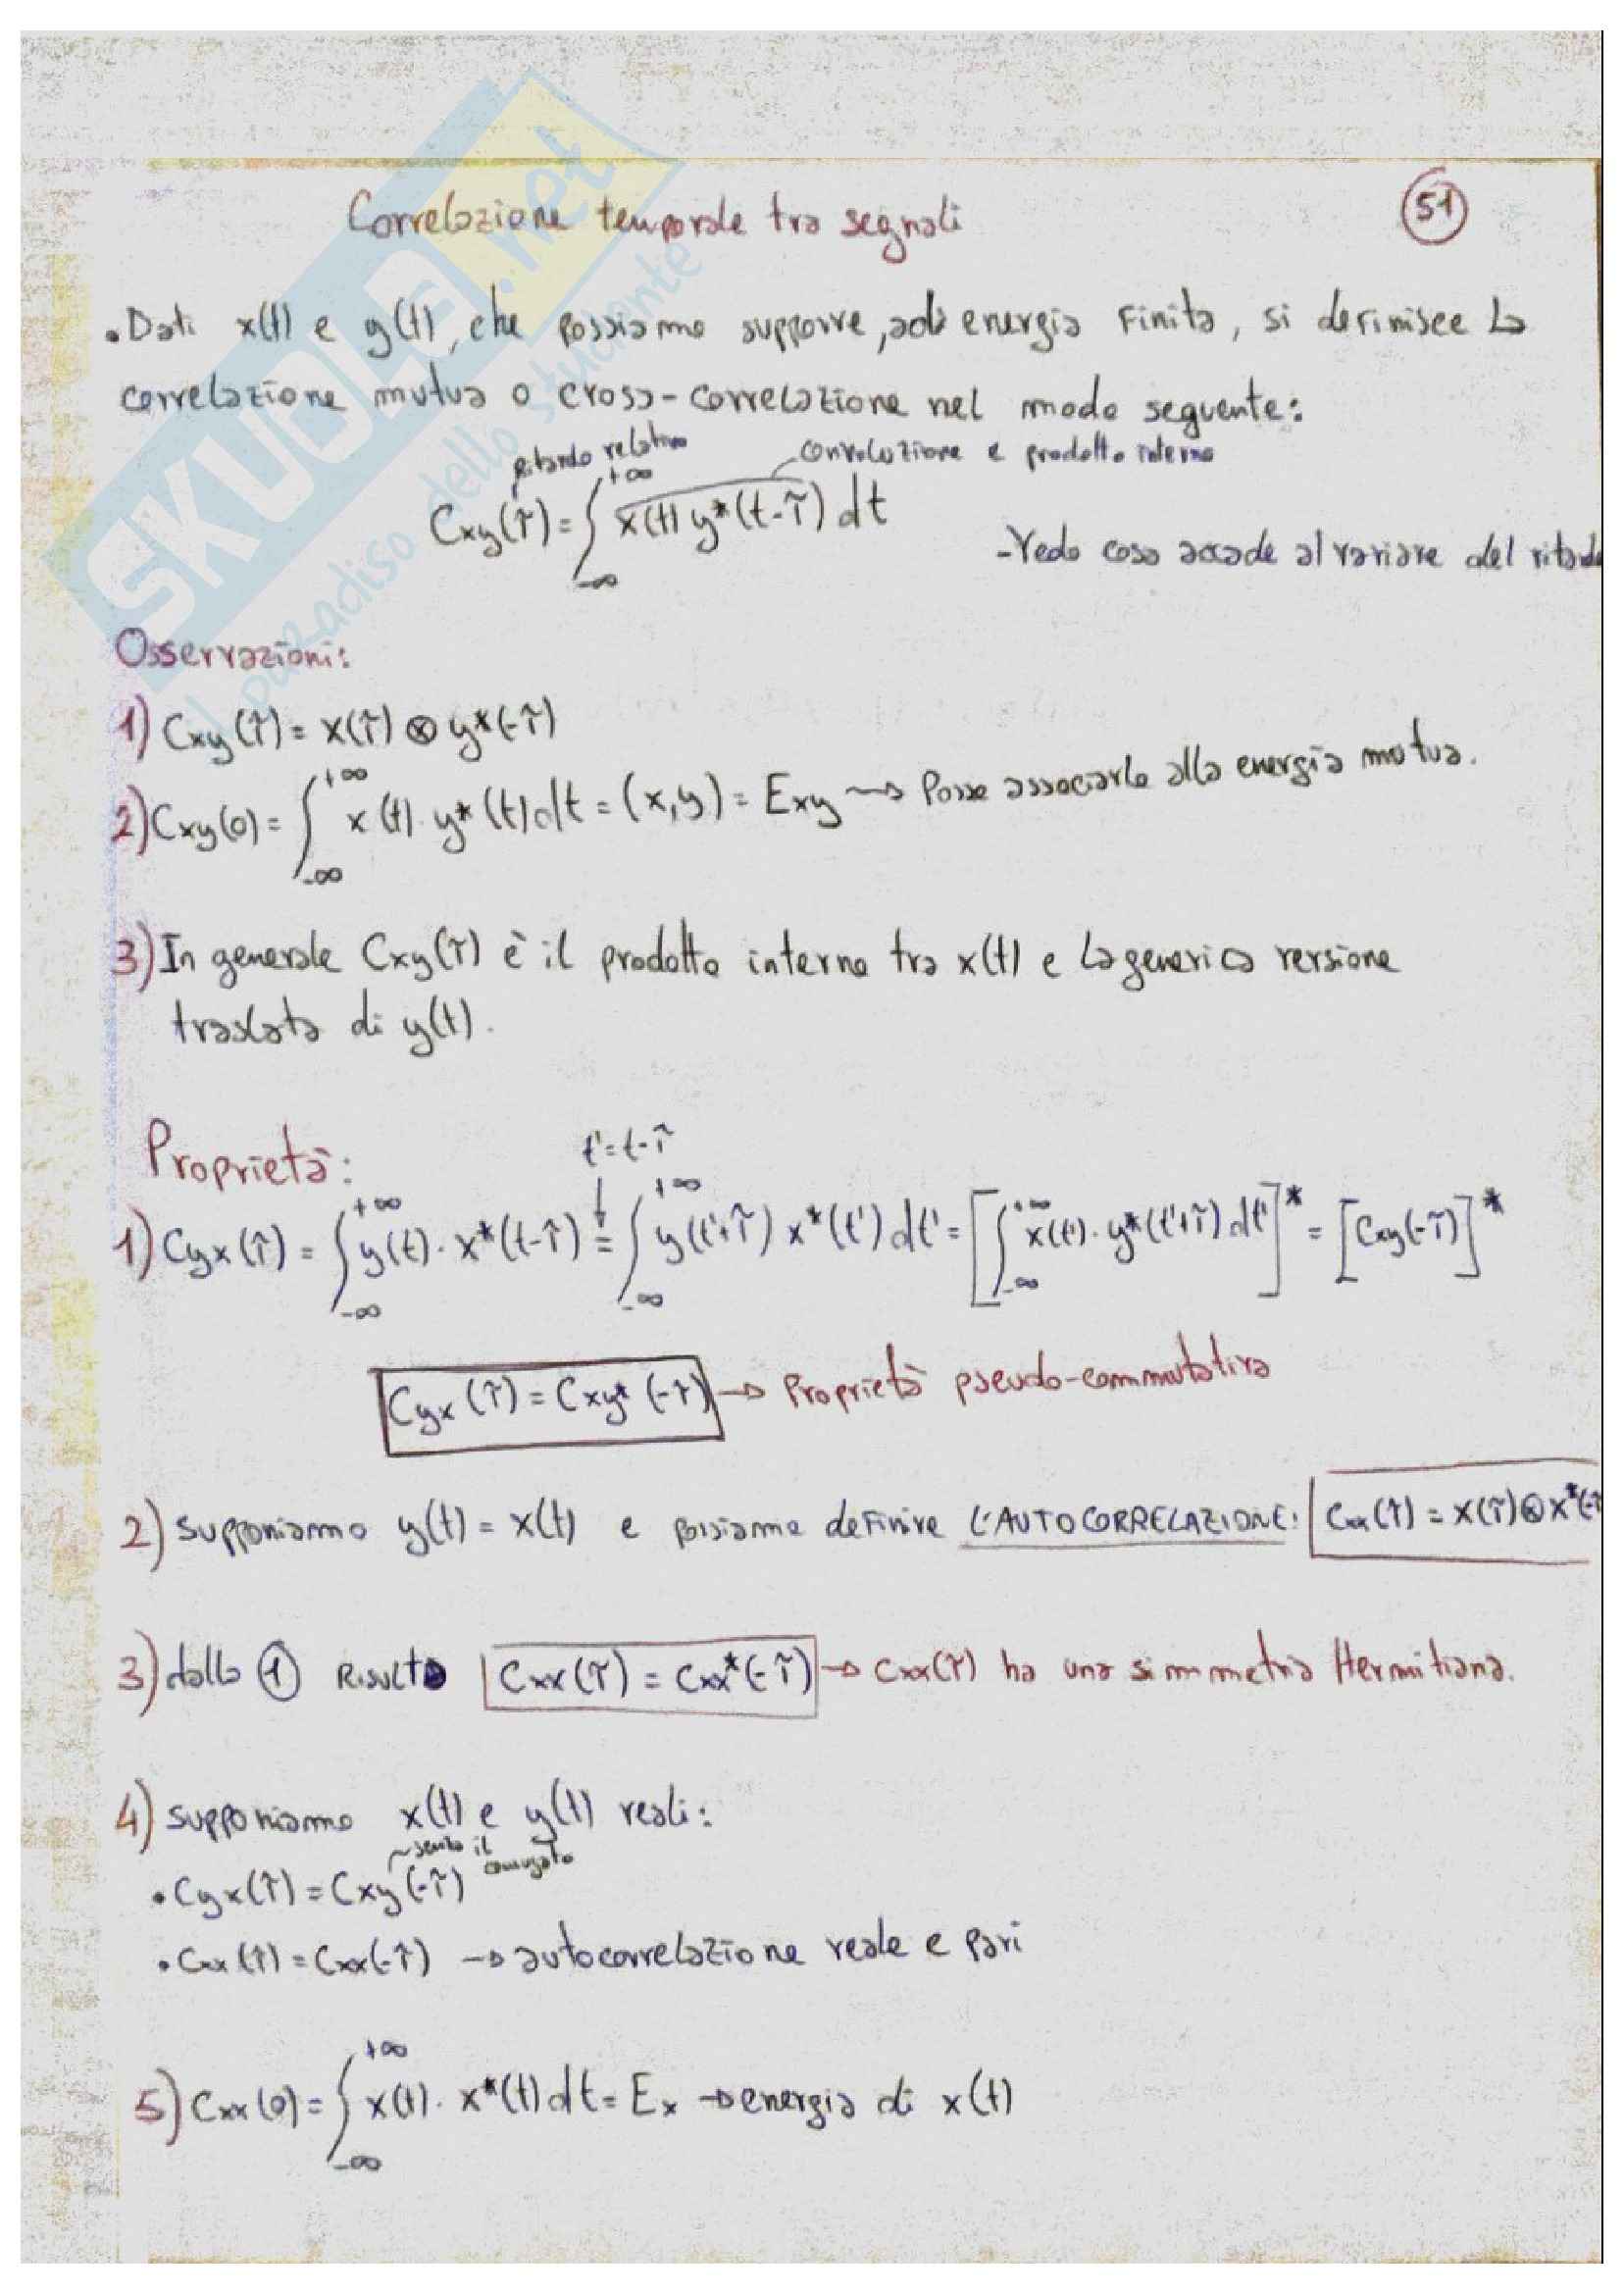 Correlazione temporale tra segnali
51
• Dati x(t) e y(t), che possiamo supporre, ad energia finita, si definisce la
correlazione mutua o cross-correlazione nel modo seguente:
ritardo relativo
convoluzione e prodotto interno
Cxy(τ) = ∫_{-∞}^{+∞} x(t) y*(t-τ) dt
- Vedo cosa accade al variare del ritardo
Osservazioni:
1) Cxy(τ) = x(τ) ⊗ y*(-τ)
2) Cxy(0) = ∫_{-∞}^{+∞} x(t) · y*(t) dt = (x,y) = Exy → Posso associarlo alla energia mutua.
3) In generale Cxy(τ) è il prodotto interno tra x(t) e la generica versione
traslata di y(t).
Proprietà:
t' = t-τ
1) Cyx(τ) = ∫_{-∞}^{+∞} y(t) · x*(t-τ) = ∫_{-∞}^{+∞} y(t'+τ) x*(t') dt' = [∫_{-∞}^{+∞} x(t') · y*(t'+τ) dt']* = [Cxy(-τ)]*
Cyx(τ) = Cxy*(-τ) → Proprietà pseudo-commutativa
2) Supponiamo y(t) = x(t) e possiamo definire L'AUTOCORRELAZIONE: Cxx(τ) = x(τ) ⊗ x*(-τ
3) dalla ① Risulta Cxx(τ) = Cxx*(-τ) → Cxx(τ) ha una simmetria Hermitiana.
4) Supponiamo x(t) e y(t) reali:
senza il
coniugato
• Cyx(τ) = Cxy(-τ)
• Cxx(τ) = Cxx(-τ) → autocorrelazione reale e pari
5) Cxx(0) = ∫_{-∞}^{+∞} x(t) · x*(t) dt = Ex → energia di x(t)
SKUOLA.net
il paradiso dello studente